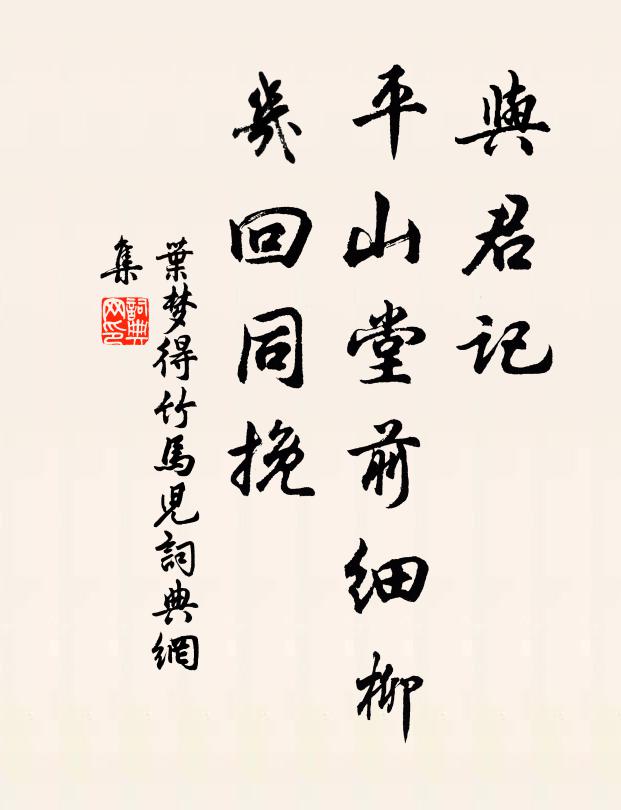 與君記
平山堂前細柳
幾回同挽
葉梦得竹馬兒詞典網
集
詞典
网印